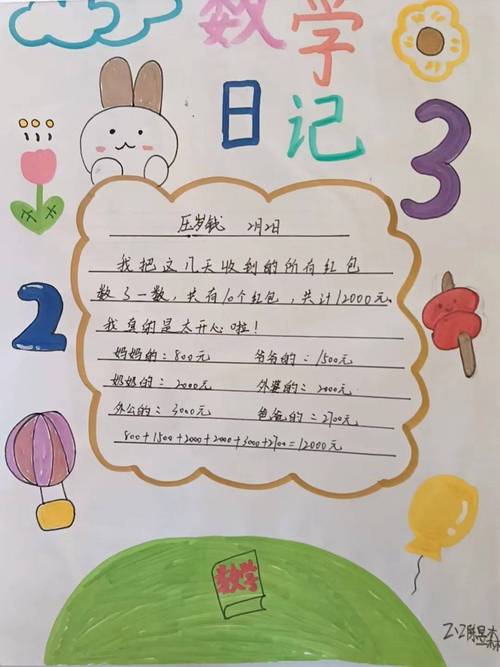 数学
日记
3
2
压岁钱 2月2日
我把这几天收到的所有红包
数了一数，共有10个红包，共计12000元。
我真的是太开心啦！
妈妈的：800元 爷爷的：1500元
奶奶的：2000元 外婆的：2000元
外公的：3000元 爸爸的：2700元
800+1500+2000+2000+3000+2700=12000元
数学